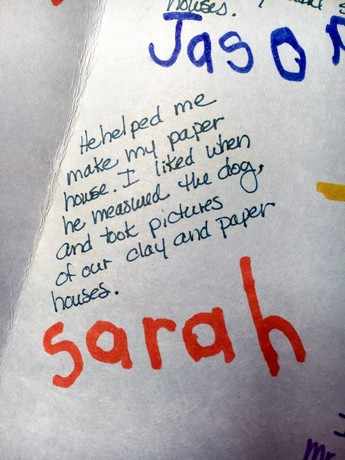 houses.
Jason
He helped me
make my paper
house. I liked when
he measured the dog,
and took pictures
of our clay and paper
houses.
sarah